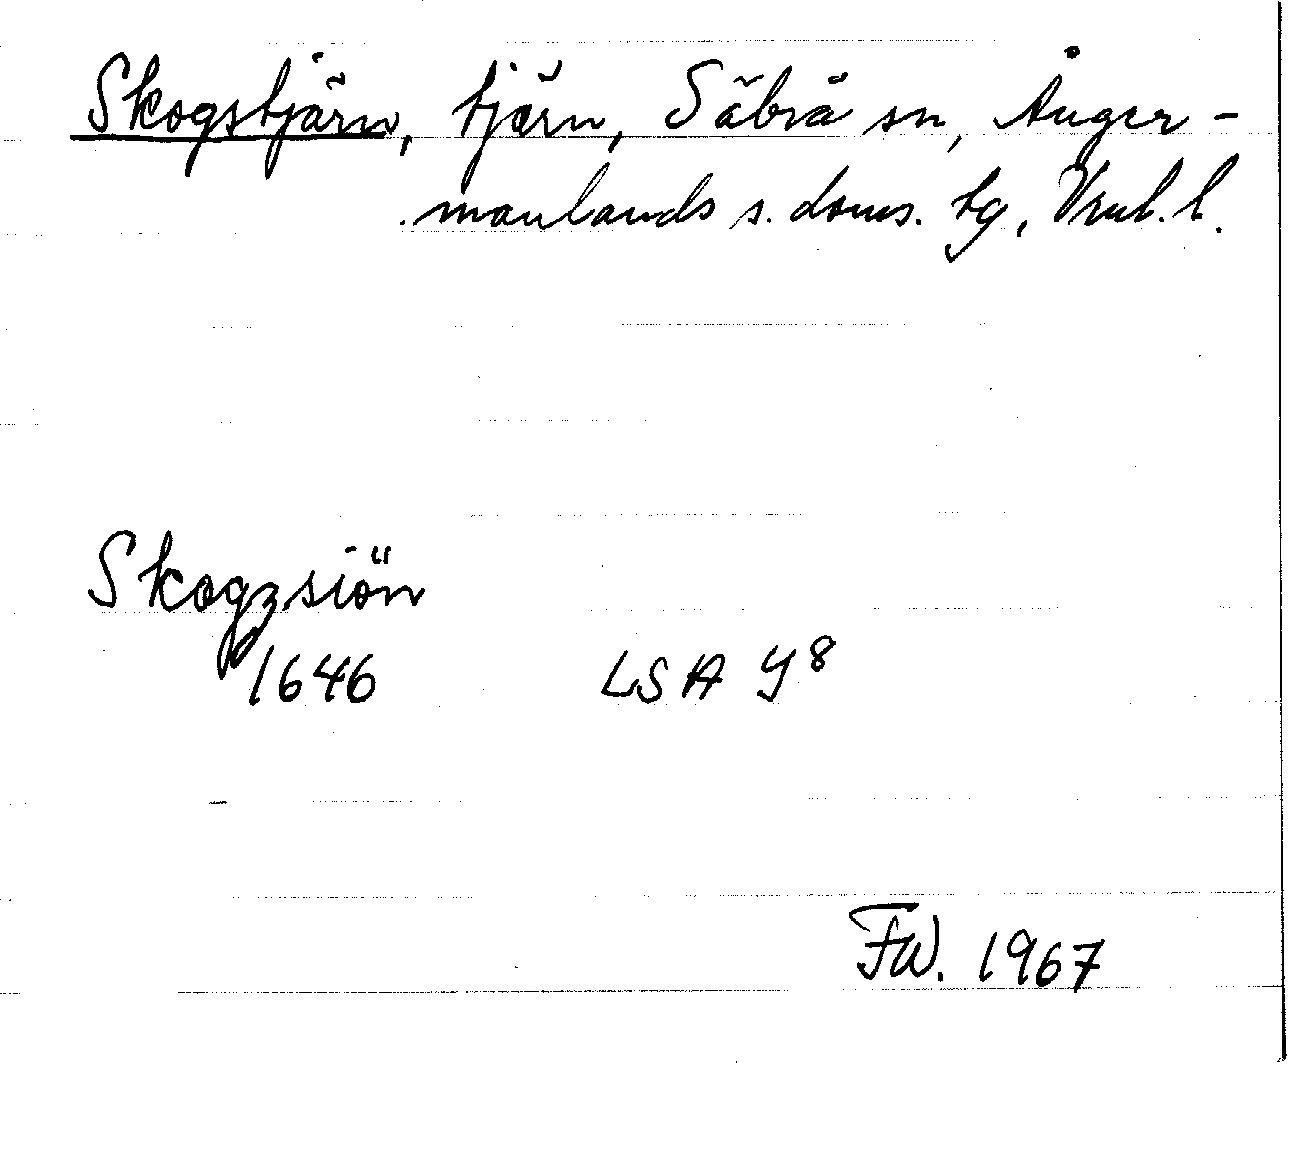 Skogstjärn, tjärn, Säbrå sn, Ånger-
manlands s. doms. tg, Vnl. l.
Skogzsiön
1646 LSA Y8
FW. 1967